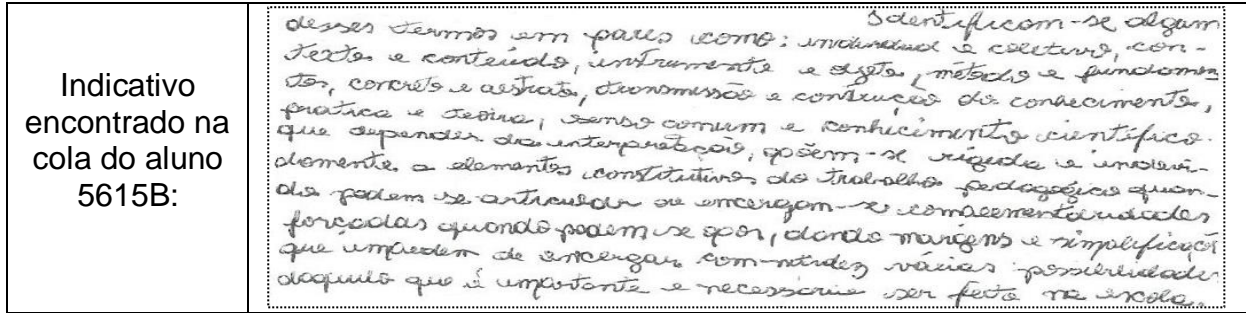 Indicativo
encontrado na
cola do aluno
5615B:
Identificam-se algum
desses termos em pares como: individual e coletivo, con-
texto e conteúdo, instrumento e objeto, método e fundamen
tos, concreto e abstrato, transmissão e construção do conhecimento,
prática e teoria, senso comum e conhecimento científico.
que depender da interpretação, opõem-se rígida e indevi-
damente a elementos constitutivos do trabalho pedagógico quan-
do podem se articular ou enxergam-se complementariedades
forçadas quando podem se opor, dando margens e simplificaçõ
que impedem de enxergar com nitidez várias possibilidades
daquilo que é importante e necessário ser feito na escola.